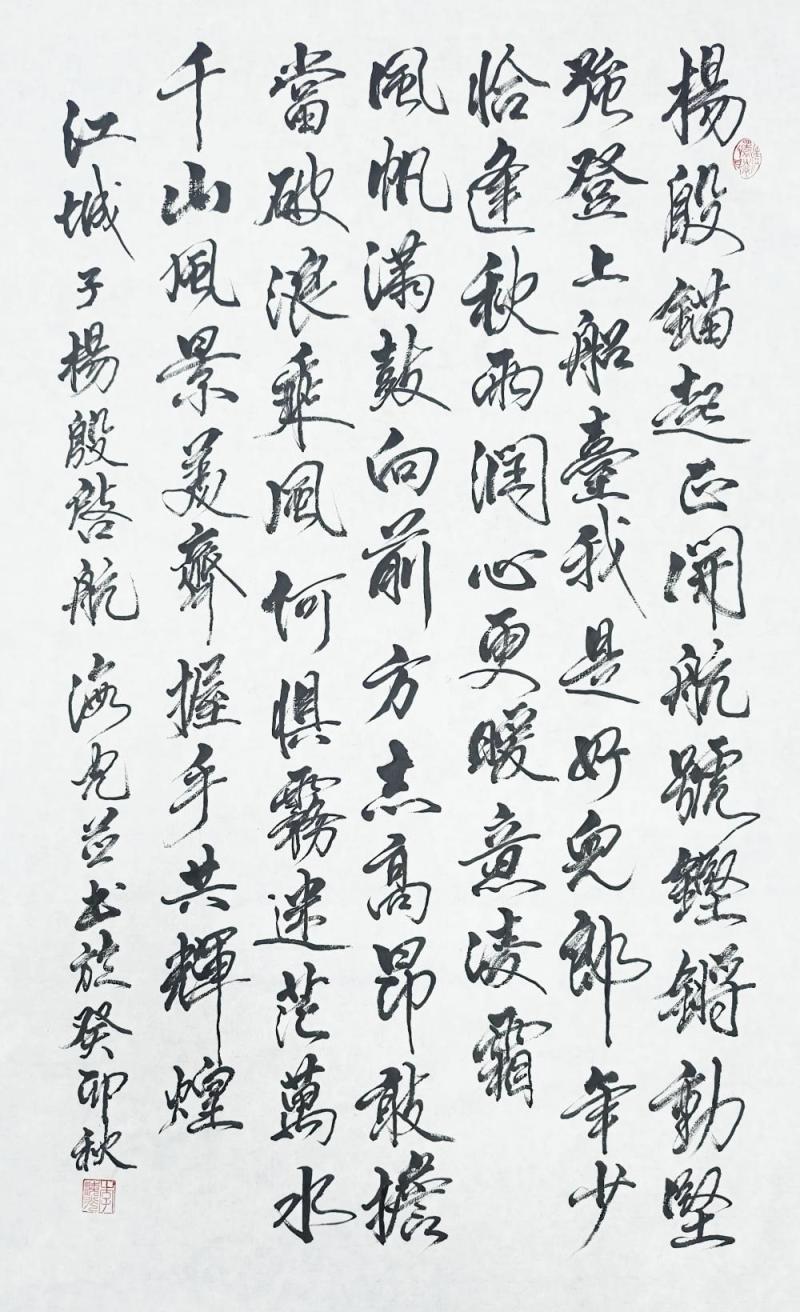 楊殷錨起正開航號鏗鏘動堅
強登上船臺我是好兒郎年少
恰逢秋雨潤心更暖意凌霜
風帆滿鼓向前方志高昂敢擔
當破浪乘風何懼霧迷茫萬水
千山風景美齊握手共輝煌
江城子楊殷啓航 海光並書於癸卯秋